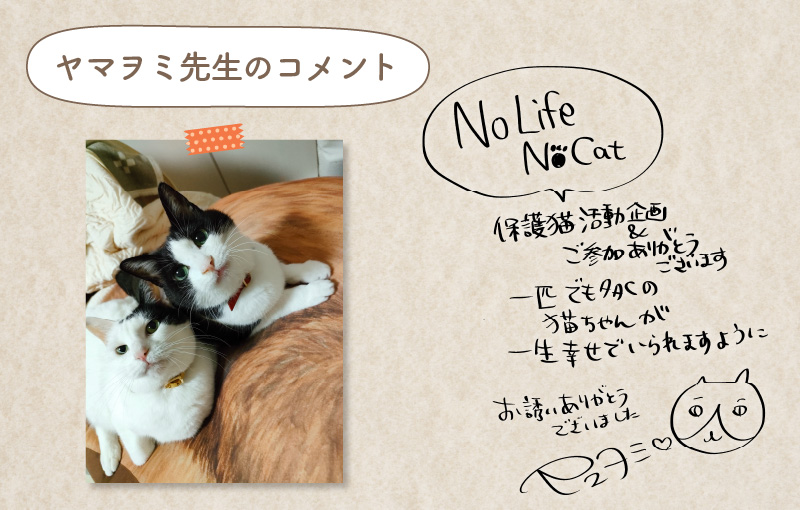 ヤマヲミ先生のコメント
No Life
No Cat
保護猫活動企画
&
ご参加ありがとう
ございます
一匹でも多くの
猫ちゃんが
一生幸せでいられますように
お誘いありがとう
ございました
ヤマヲミ♡